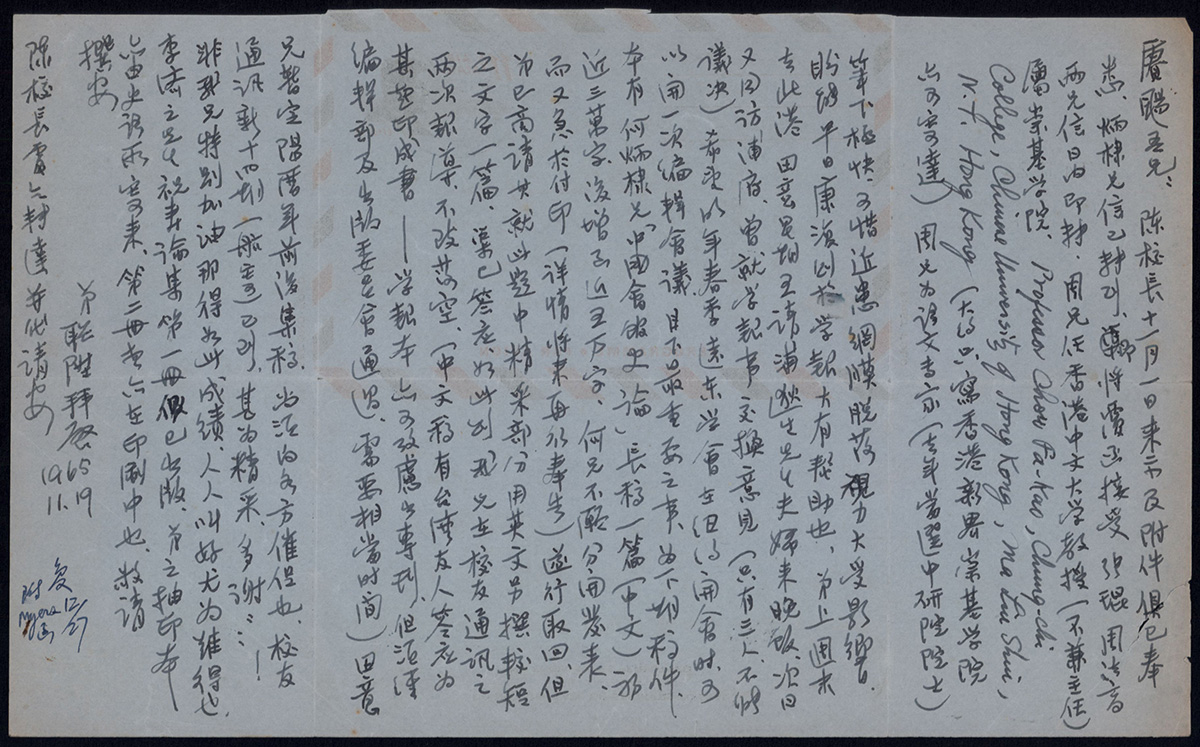 賡颺吾兄：陳校長十一月一日來示及附件俱已奉
悉，炳棣兄信已轉到，弟即將覆函接受，張琨周法高
兩兄信日內即轉，周兄任香港中文大學教授（不兼主任）
屬崇基學院，Professor Chou Fa-Kao, Chung-chi
College, Chinese University of Hong Kong, Ma Liu Shui,
N.T. Hong Kong （大約只寫香港新界崇基學院
亦可寄達）周兄為語文專家（去年當選中研院院士）
筆下極快，可惜近患網膜脫落視力大受影響，
盼能早日康復則於學報大有幫助也，弟上週末
去此港，田意星期五請浦狄生先生夫婦來晚飯，次日
又回訪浦府，曾就學報事交換意見（只有三人，不能
議決）希望明年春季遠東學會在紐約開會時，可
以開一次編輯會議，目下最重要之事為下期稿件，
本有何炳棣兄「中國會館史論」長稿一篇（中文）初
近三萬字，後增至近五萬字，何兄不願分開發表，
而又急於付印（詳情將來再行奉告）遂行取回，但
弟已商請其就此題中精采部分用英文另撰較短
之文字一篇，渠已答應如此則我兄在校友通訊之
兩次報導，不致落空，（中文稿有台灣友人答應為
其趕印成書——學報本亦可考慮出專刊，但須經
編輯部及出版委員會通過，需要相當時間）田意
兄暫定陽曆年前後集稿，尚須向各方催促也，校友
通訊新十四期（航寄）已到，甚為精采，多謝〻〻！
非我兄特別加油那得如此成績，人人叫好尤為難得也，
李濟之先生祝壽論集第一冊俱已出版，弟之抽印本
亦由史語所寄來，第二冊想亦在印刷中也，敬請
撰安
弟聯陞拜啓 1965
11.19
陳校長處亦轉達并代請安
復12/5
附Myers函